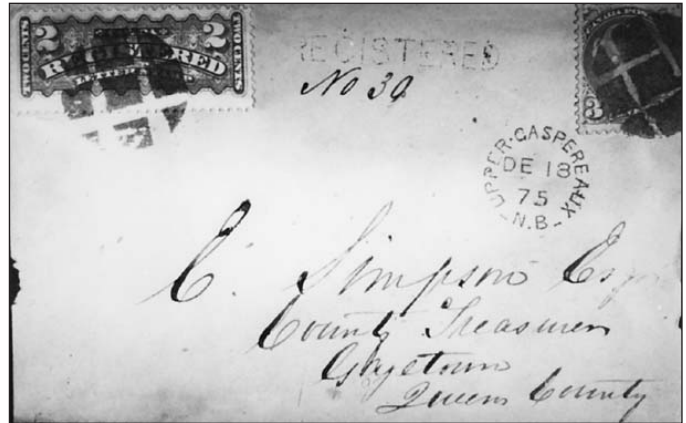 2 2
TWO CENTS TWO CENTS
REGISTERED
LETTER
REGISTERED
No 39
3
UPPER·GASPEREAUX
DE 18
75
N.B.
C. Simpson Esq
County Treasurer
Gagetown
Queens County